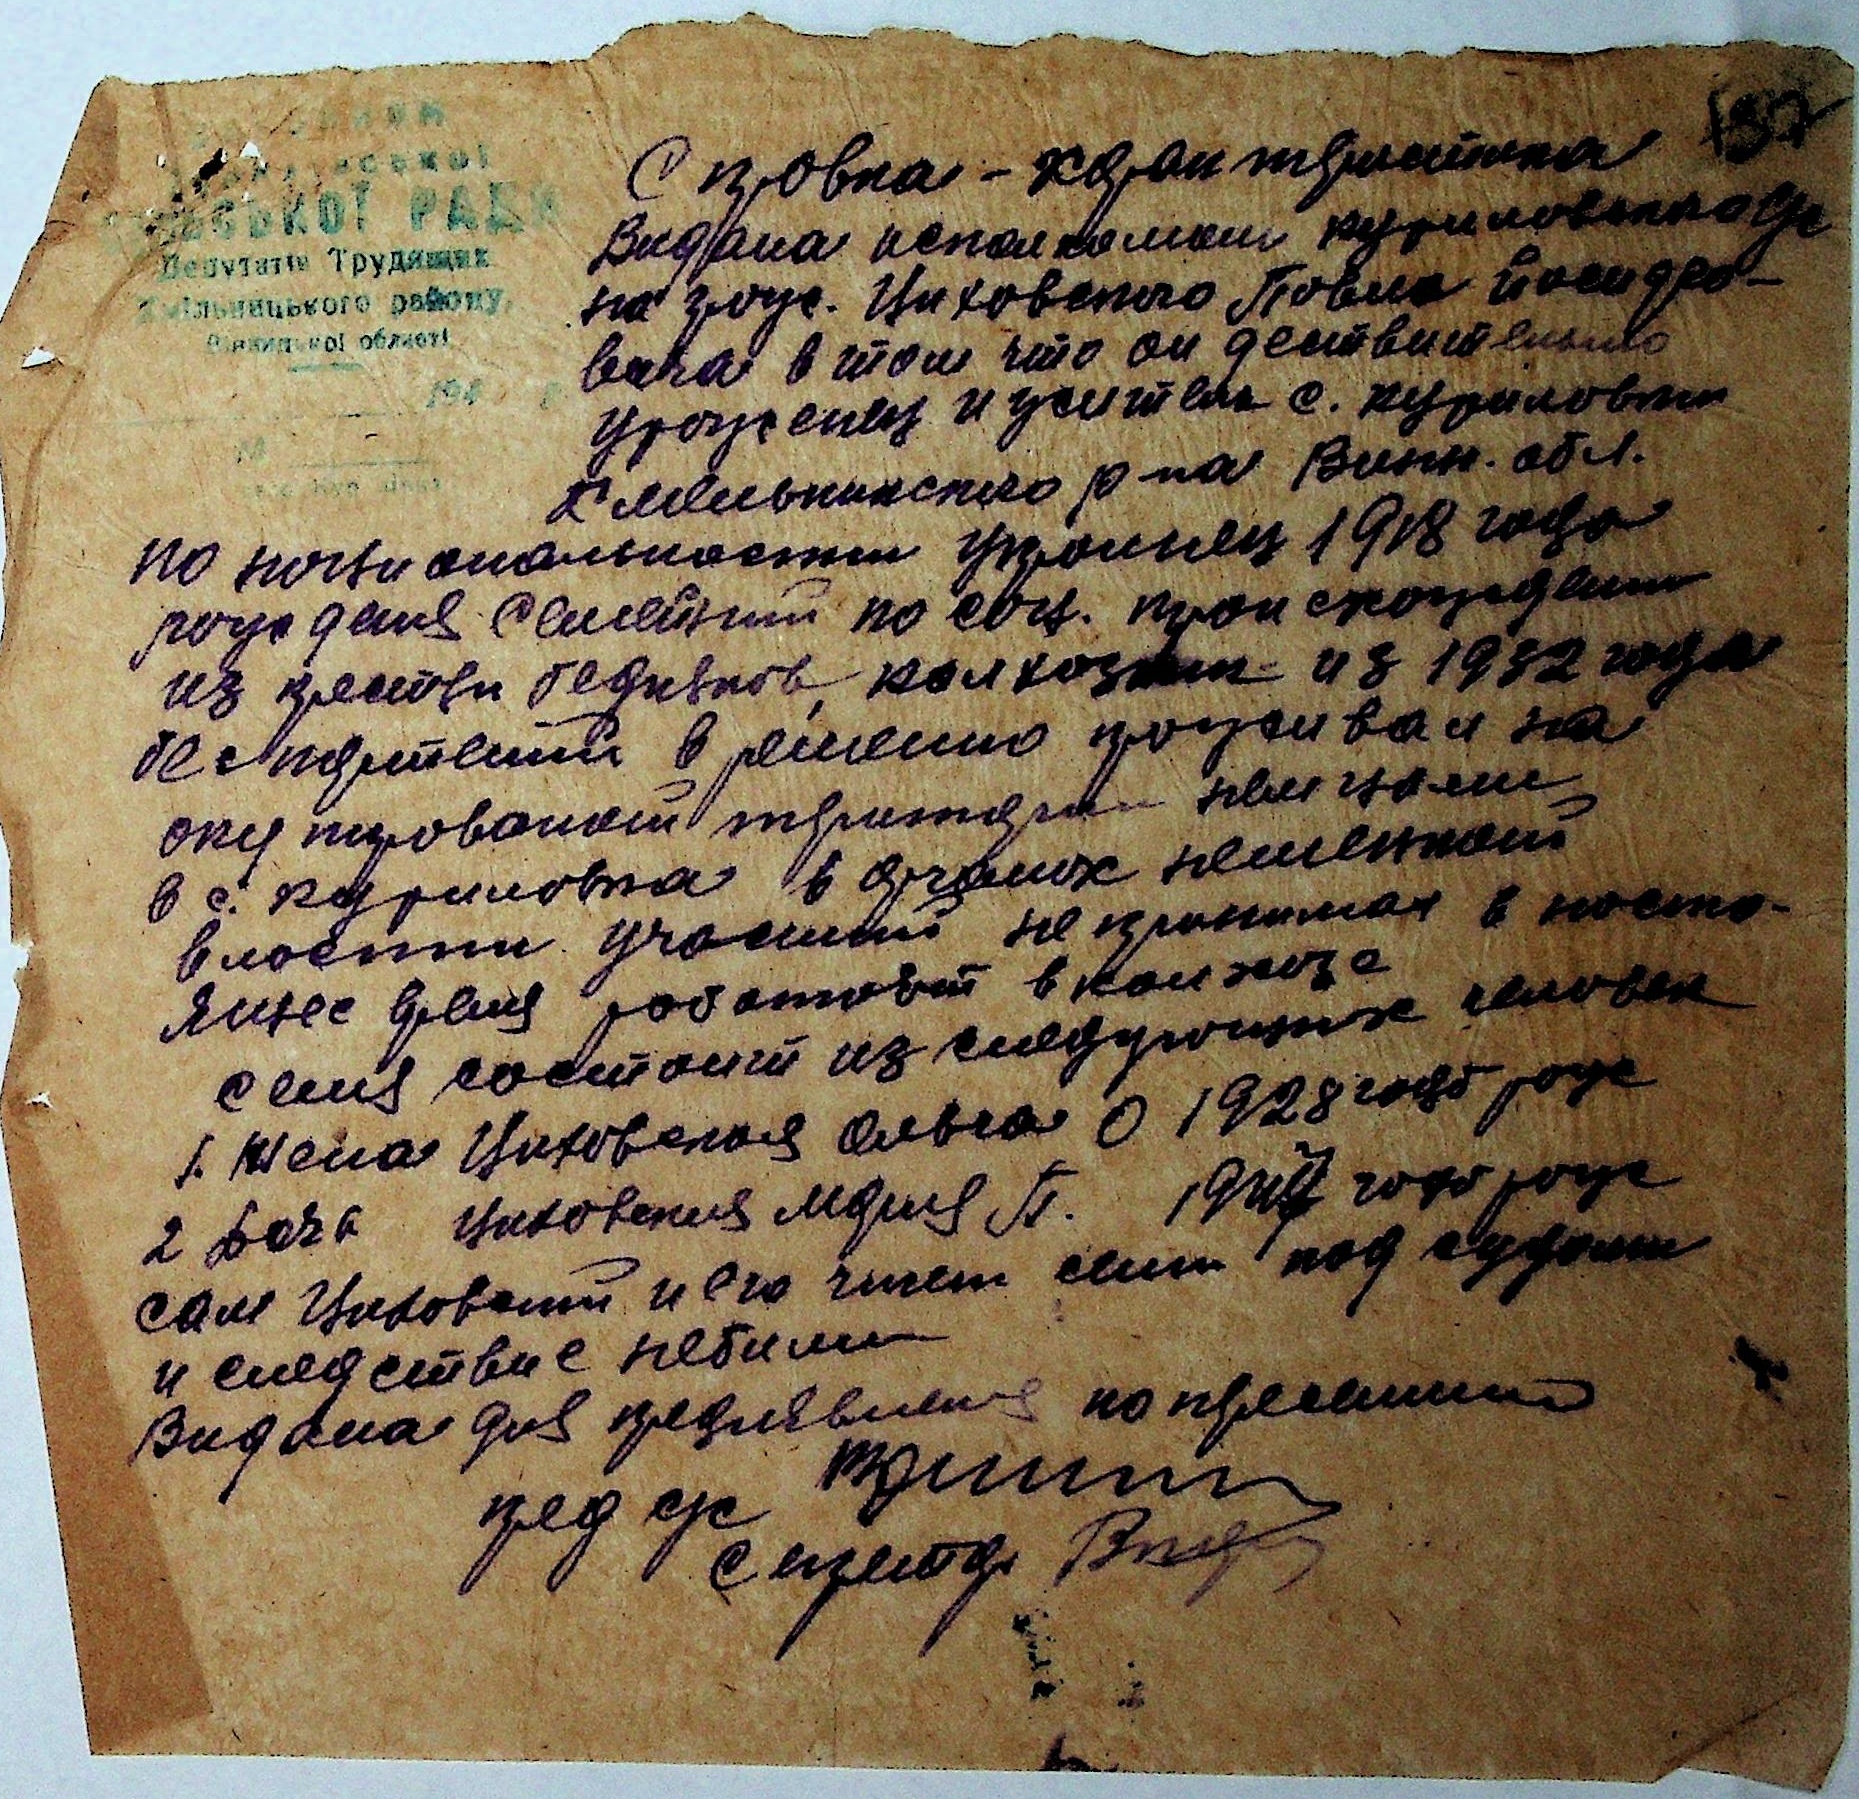 137
СІЛЬСЬКОЇ РАДИ
Депутатів Трудящих
Хмільницького району,
Вінницької області
194
Справка - характеристика
Видана исполкомом Куриловского с/с
на грож. Циховского Повла Йосифо-
вича в том что он дествительно
уроженец и житель с. Куриловки
Хмельникского р-на Винн. обл.
по националности украинец 1918 года
рождения семейний по соц. происхождении
из крестян бедняков, колхозник из 1932 года
беспартейний временно проживал на
окупированой територии немцами
в с. Куриловка в органох немецкой
влости участий не принимал вносто-
ящее время работает в колхозе
семя состоит из следующих человек
1. Жена Циховская Ольга О 1928 года рож
2 Дочь Циховская Мария П. года рож
сам Циховский и его член семи под судом
и следствие небили
Видана для предявления по требованию
пред с/с
Секретар